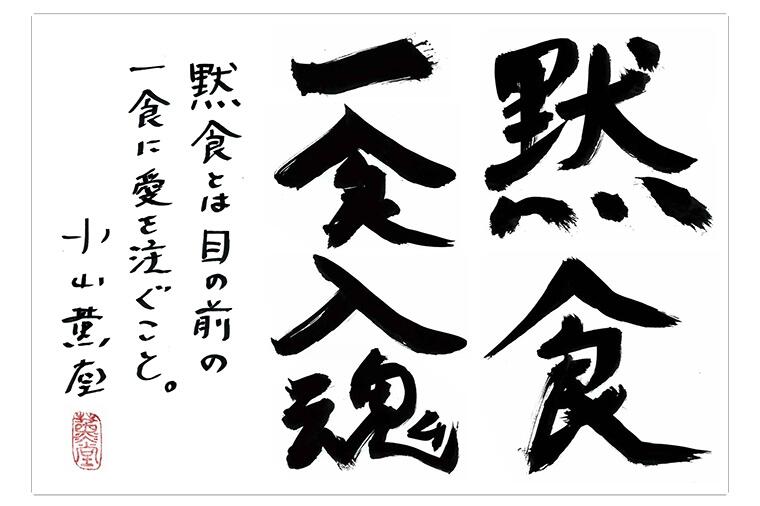 黙食
一食入魂
黙食とは目の前の
一食に愛を注ぐこと。
小山薫堂
薫堂